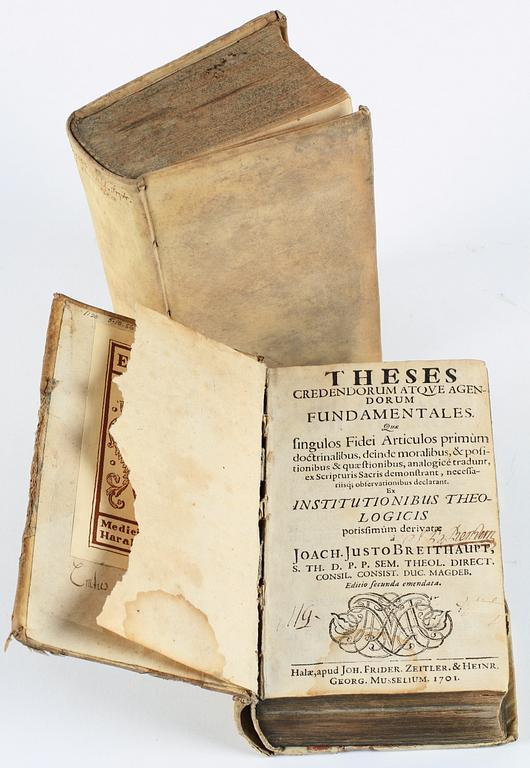 THESES
CREDENDORUM ATQVE AGEN-
DORUM
FUNDAMENTALES.
Quæ
singulos Fidei Articulos primùm
doctrinalibus, deinde moralibus, & posi-
tionibus & quæstionibus, analogicè tradunt,
ex Scripturis Sacris demonstrant, necessa-
riisq; observationibus declarant.
Ex
INSTITUTIONIBUS THEO-
LOGICIS
potissimùm derivatæ
à
JOACH. JUSTO BREITHAUPT,
S. TH. D. P. P. SEM. THEOL. DIRECT.
CONSIL. CONSIST. DUC. MAGDEB.
Editio secunda emendata.
119-
Halæ, apud JOH. FRIDER. ZEITLER. & HEINR.
GEORG. MUSSELIUM. 1701.
E
Medie
Haral